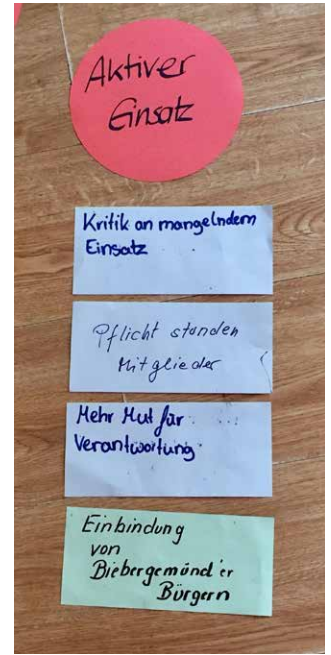 Aktiver
Einsatz
Kritik an mangelndem
Einsatz
Pflicht stunden
Mitglieder
Mehr Mut für
Verantwortung
Einbindung
von
Biebergemünd'er
Bürgern